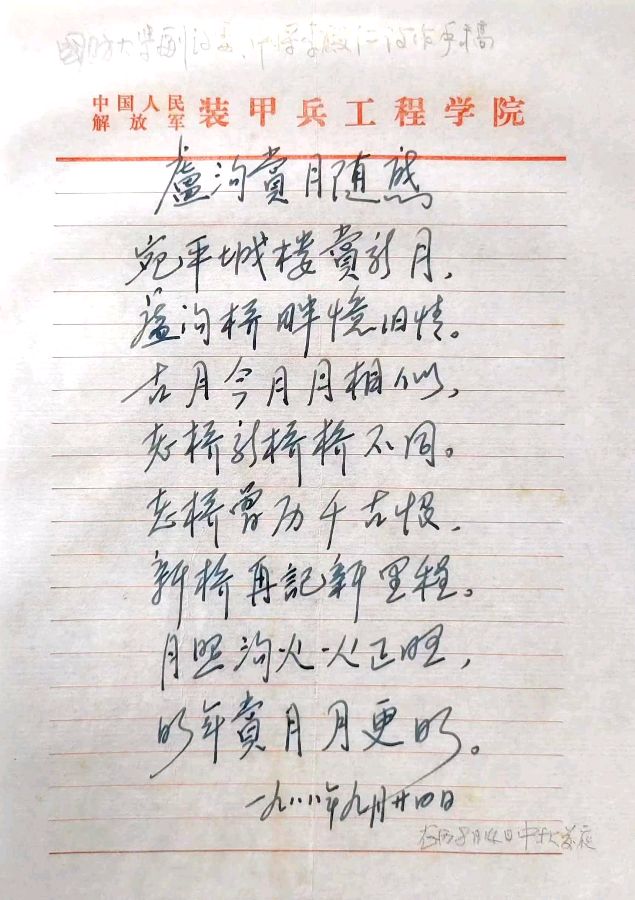 國防大学副政委、中将李殿仁诗作手稿
中国人民
解放军 装甲兵工程学院
盧沟賞月随感
宛平城楼赏新月，
蘆沟桥畔憶旧情。
古月今月月相似，
老桥新桥桥不同。
老桥曾历千古恨，
新桥再記新里程。
月照沟火火正旺，
明年賞月月更明。
一九八八年九月廿四日